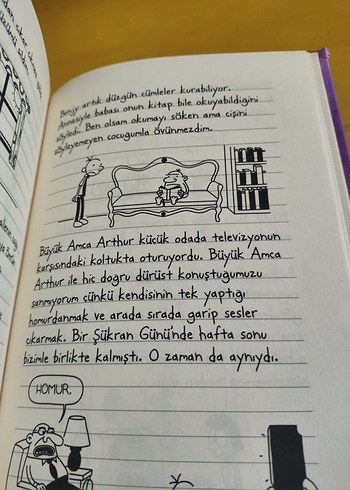 Benjy artık düzgün cümleler kurabiliyor.
Annesiyle babası onun kitap bile okuyabildiğini
söyledi. Ben olsam okumayı söken ama çişini
söyleyemeyen çocuğumla övünmezdim.
Büyük Amca Arthur küçük odada televizyonun
karşısındaki koltukta oturuyordu. Büyük Amca
Arthur ile hiç doğru dürüst konuştuğumuzu
sanmıyorum çünkü kendisinin tek yaptığı
homurdanmak ve arada sırada garip sesler
çıkarmak. Bir Şükran Günü'nde hafta sonu
bizimle birlikte kalmıştı. O zaman da aynıydı.
HOMUR.